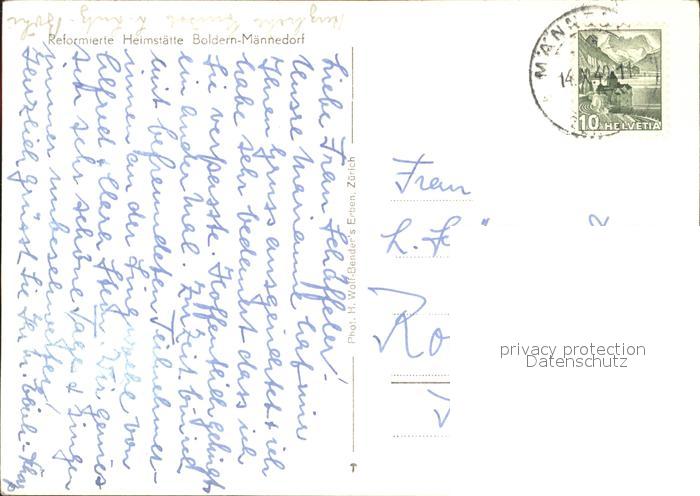 Reformierte Heimstätte Boldern-Männedorf
Liebe Frau Schäffeler!
Unsre Marianne hat mir
Ihren Gruss ausgerichtet & ich
habe sehr bedauert dass ich
Sie verpasste. Hoffentlich gelingts
ein ander Mal. Zur Zeit bin ich
mit befreundeten Teilnehmer-
innen an der Singwoche von
Alfred & Klara Stern. Wir geniessen
sehr schöne Tage & singen
immer unbeschwerter!
Herzlich grüsst Sie Ihr
Phot. H. Wolf-Bender's Erben, Zürich
MÄNNE
14.
10 HELVETIA
Frau
L.
Ro
privacy protection
Datenschutz